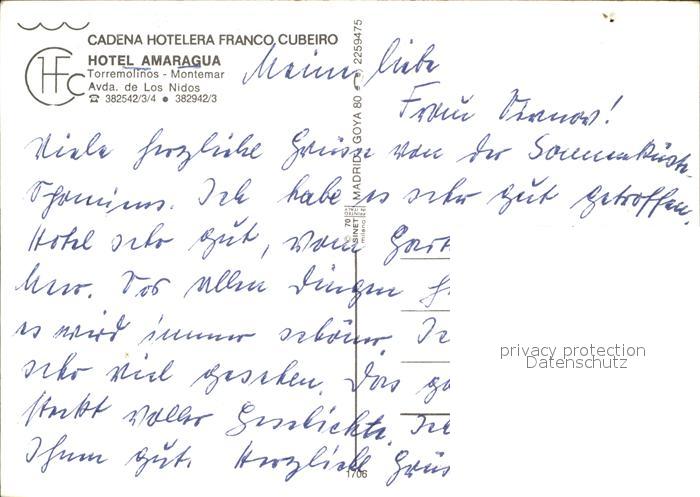 CADENA HOTELERA FRANCO CUBEIRO
HOTEL AMARAGUA
Torremolinos - Montemar
Avda. de Los Nidos
☎ 382542/3/4 ● 382942/3
CHF
MADRID GOYA 80 2259475
Meine liebe
Frau
Viele herzliche Grüsse von der Sonnenküste
Spaniens. Ich habe es sehr gut getroffen,
Hotel sehr gut, vom Gart
Meer. Vor allen Dingen
es wird immer schöner. Ic
sehr viel gesehen. Das ga
steckt voller Geschichte. Ich
Ihnen gut. Herzliche Grüs
1706
privacy protection
Datenschutz